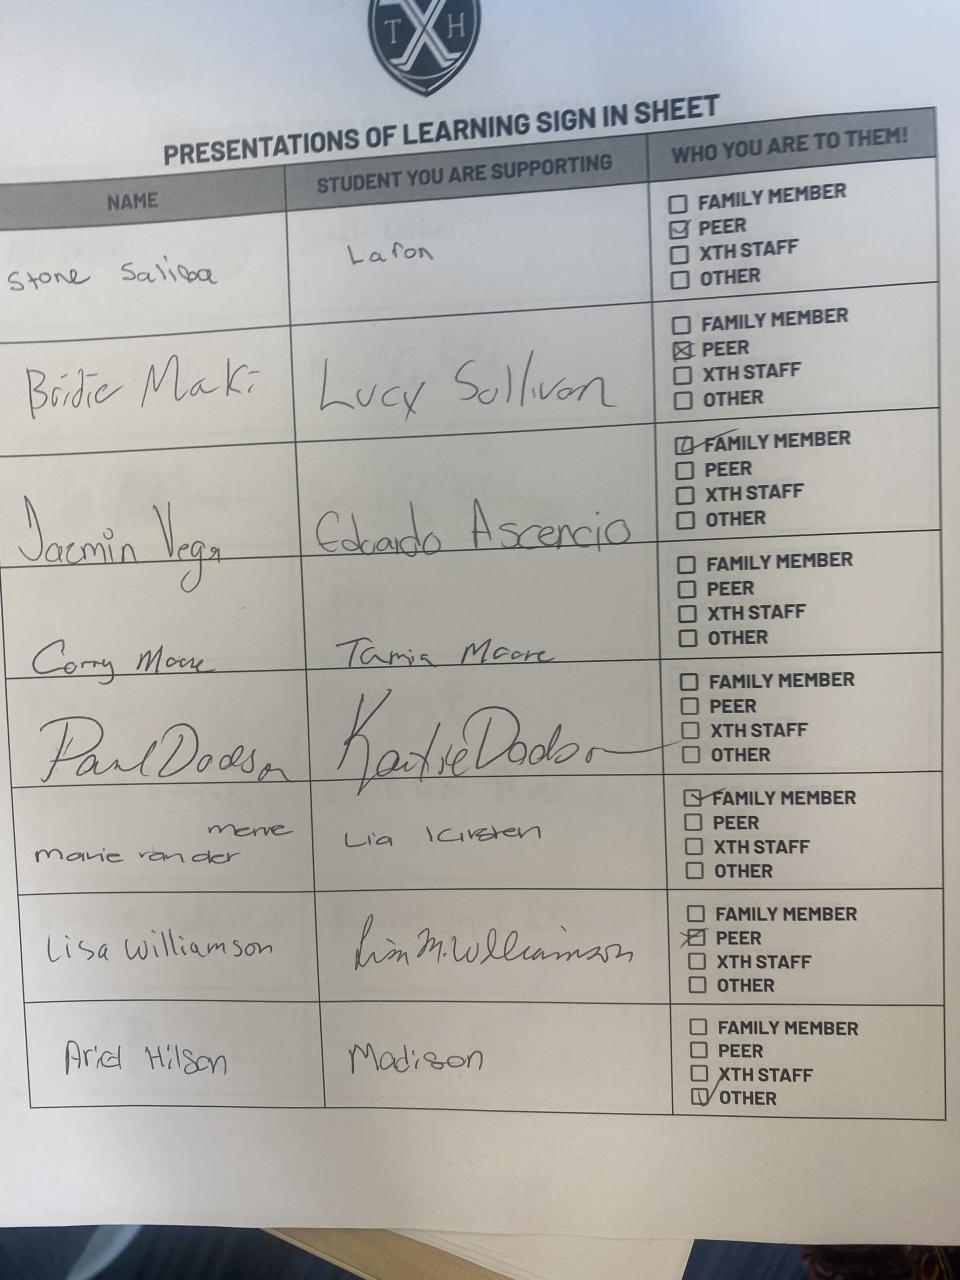 T X H
PRESENTATIONS OF LEARNING SIGN IN SHEET
NAME STUDENT YOU ARE SUPPORTING WHO YOU ARE TO THEM!
Stone Saliba Lafon
FAMILY MEMBER
PEER
XTH STAFF
OTHER
Bridie Maki Lucy Sullivan
FAMILY MEMBER
PEER
XTH STAFF
OTHER
Jazmin Vega Edoardo Ascencio
FAMILY MEMBER
PEER
XTH STAFF
OTHER
Corry Moore Tamia Moore
FAMILY MEMBER
PEER
XTH STAFF
OTHER
Paul Dodson Kaitie Dodson
FAMILY MEMBER
PEER
XTH STAFF
OTHER
merve
marie van der Lia Kirsten
FAMILY MEMBER
PEER
XTH STAFF
OTHER
Lisa Williamson M. Williamson
FAMILY MEMBER
PEER
XTH STAFF
OTHER
Hilson Madison
FAMILY MEMBER
PEER
XTH STAFF
OTHER